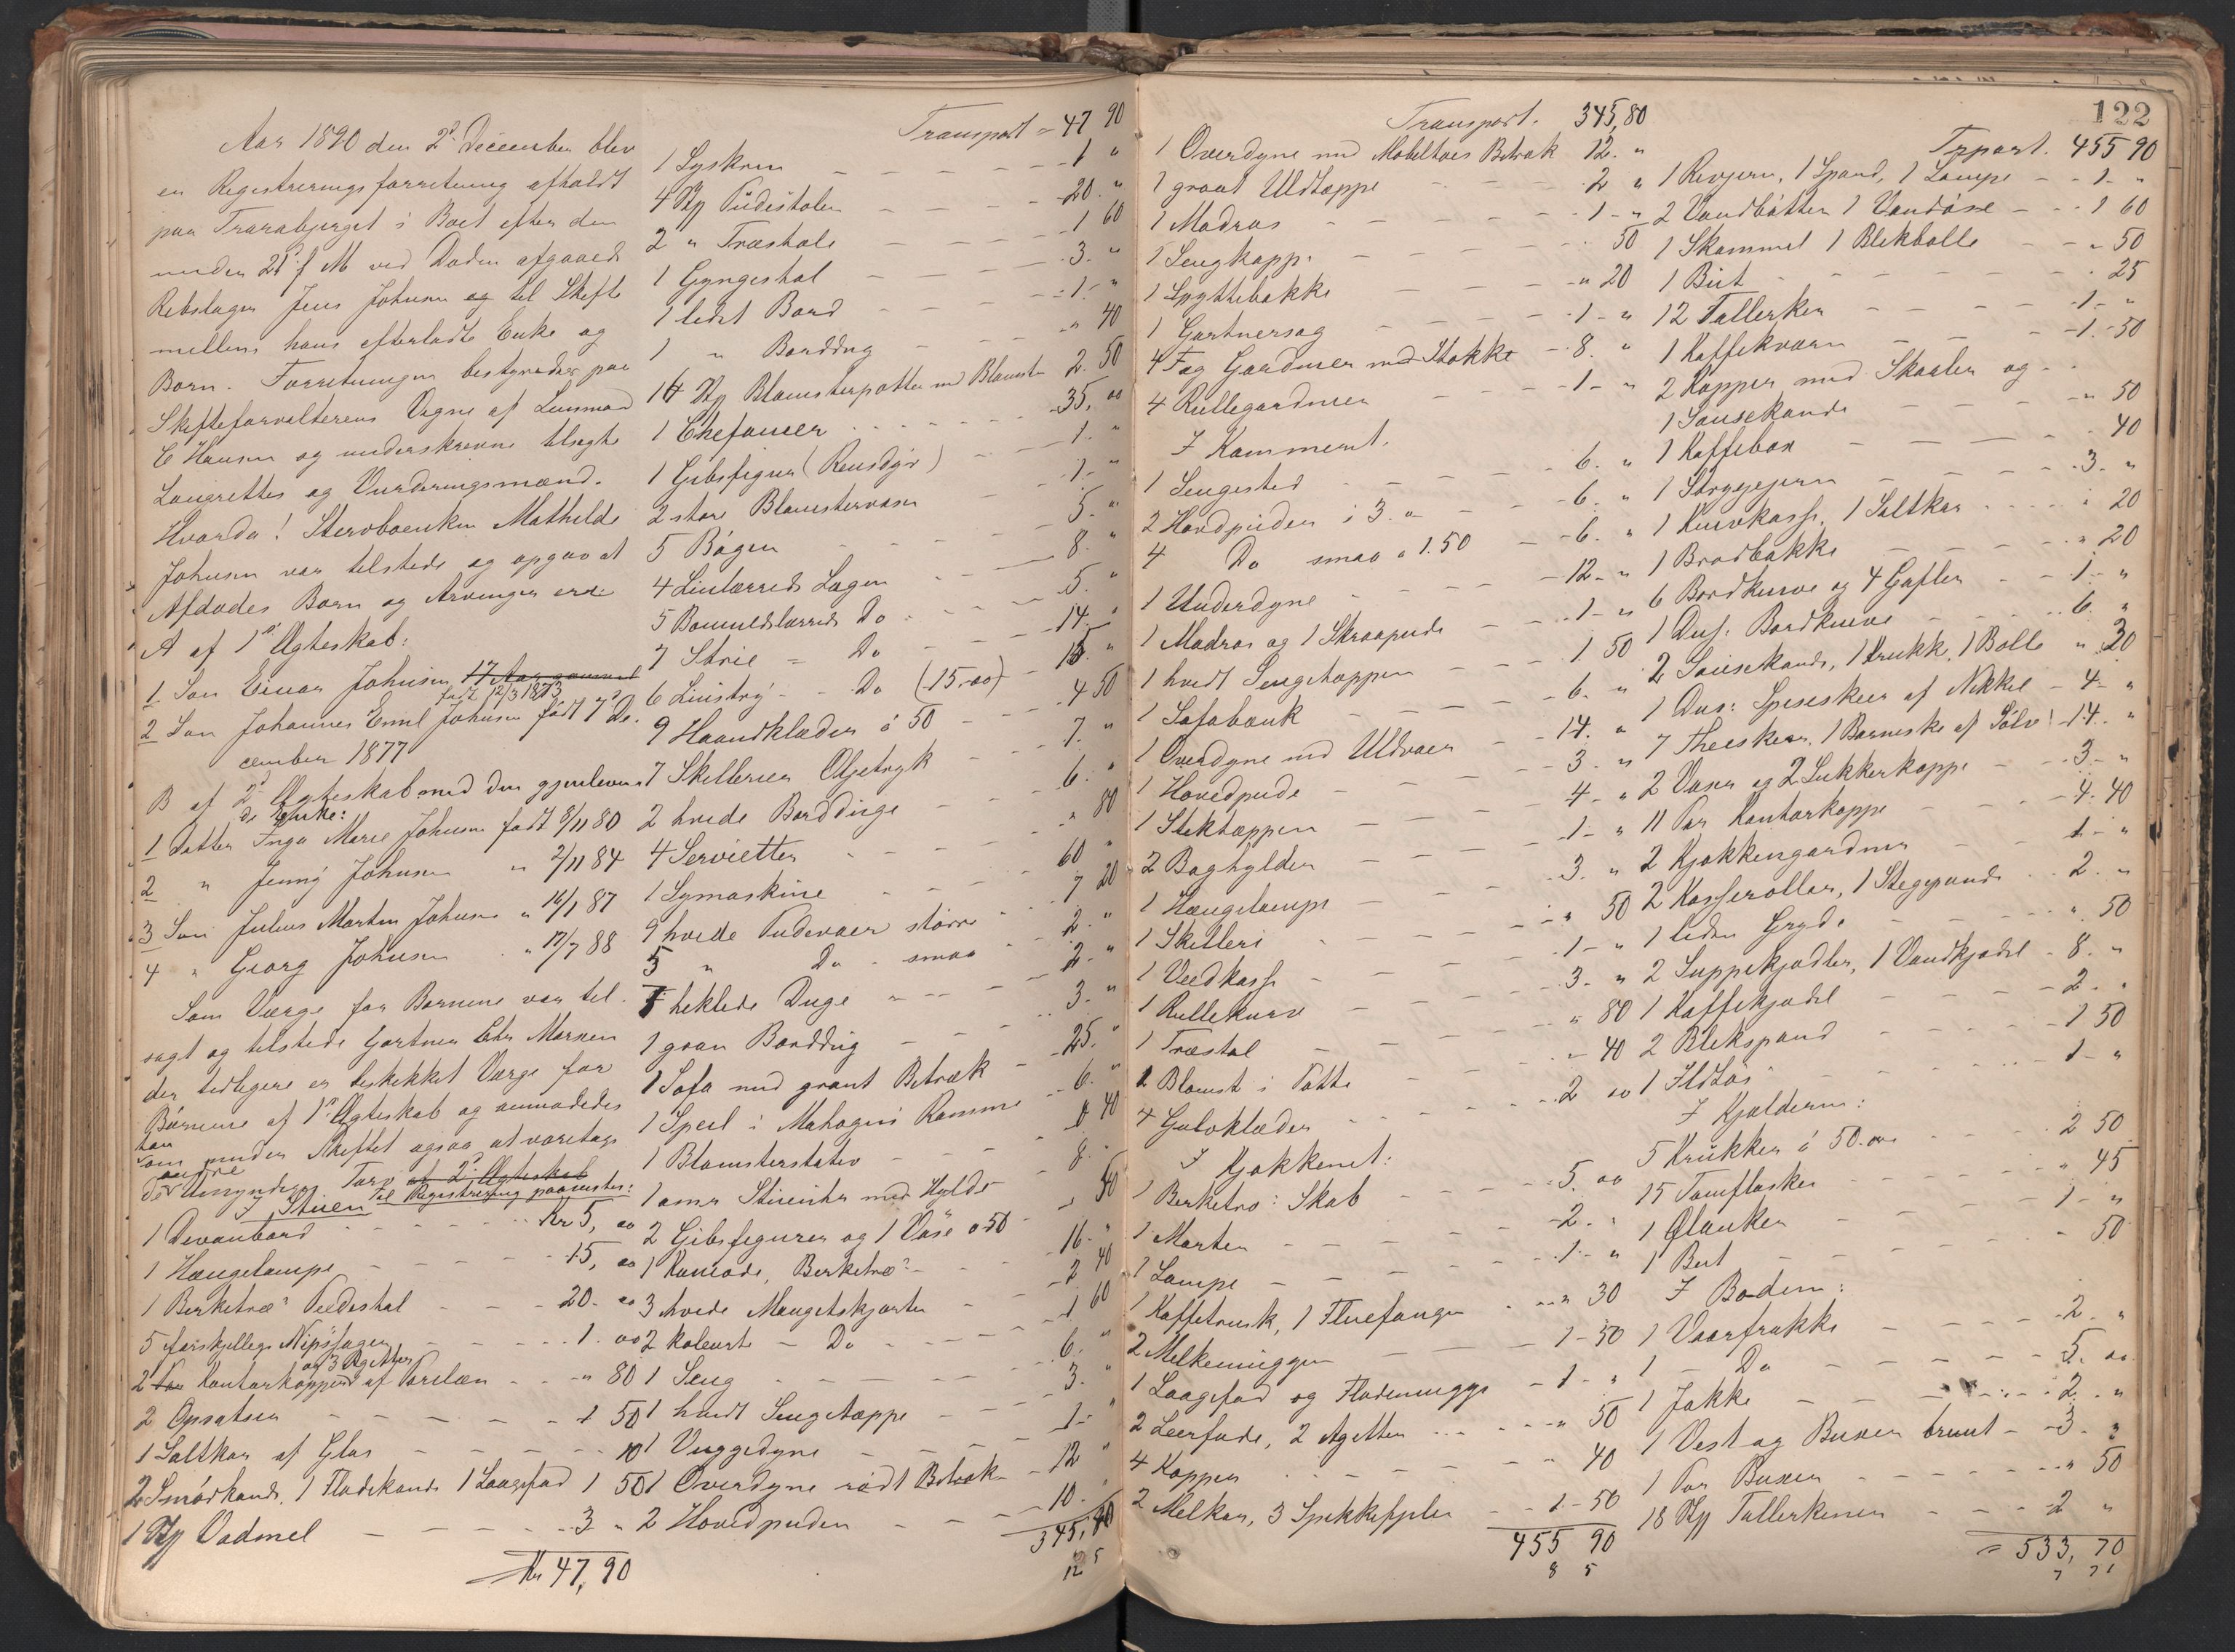 Aar 1890 den 2d December blev
en Registreringsforretning afholdt
paa Trarabjerget i Boet efter den
under 21 f M ved Døden afgaaede
Rebslager Jens Johnsen og til Skifte
mellem hans efterladte Enke og
Børn. Forretningen bestyredes paa
Skifteforvalterens Vegne af Lensmand
C Hansen og underskrevne tilsagte
Laugrettes og Vurderingsmænd.
Hvorda! Stervboenken Mathilde
Johnsen var tilstede og opgav at
Afdødes Børn og Arvinger ere
A af 1ste Ægteskab:
1 Søn Einar Johnsen 17 Aar gammel
født 12/3 1873
2 Søn Johannes Emil Johnsen født 7d De-
cember 1877
B af 2d Ægteskab med den gjenleven-
de Enke:
1 Datter Inga Marie Johnsen født 8/11 80
2 " Jenny Johnsen " 2/11 84
3 Søn Julius Marten Johnsen " 16/1 87
4 " Georg Johnsen " 17/7 88
Som Værge for Børnene var til-
sagt og tilstede Gartner Chr Marsen
der tidligere er beskikket Værge for
Børnene af 1ste Ægteskab og anmodedes
han
om under Skiftet ogsaa at varetage
andre
de Umyndiges Tarv af 2d Ægteskab
I Stuen til Registrering paavistes:
1 Divanbord Kr 5, 00
1 Hængelampe 15, 00
1 Berketræs Pidestal 20. 00
5 forskjellige Nipssager 1. 00
og 3 Agetter
2 Par Kantorkopper af Porslæn " 80
2 Opsatser 1 50
1 Saltkar af Glas 10
2 Smørkande, 1 Flødekande 1 Laagefad 1 50
1 Stk Vadmel 3 "
Kr 47,90
Transport = 47 90
1 Lyskron 1 "
4 Stk Pudestoler 20. "
2 " Træstole 1 60
1 Gyngestol 3. "
1 lidet Bord 1. "
1 " Borddug " 40
14 Stk Blomsterpotter med Blomster 2. 50
1 Chefonier 35, 00
1 Gibsfigur (Rensdyr) 1. "
2 store Blomstervaser 1. "
5 Bøger 5. "
4 Linlærreds Lagen 8. "
5 Bomuldslærreds Do 5. "
7 Strie = Do 14. "
6 Linstry - Do (15.00) 15. "
9 Haandklæder á 50 4 50
7 Skillerier Oljetryk 7. "
2 hvide Borddúge 6. "
4 Servietter " 80
1 Symaskine 60 "
9 hvide Pudevaer større 7 20
5 " Do smaa 2. "
5 heklede Duge 2. "
1 graa Borddúg 3. "
1 Sofa med grønt Betræk 25. "
1 Speil i Mahogni Ramme 6. "
1 Blomsterstativ " 40
1 amr Stueuhr med Hylde 8. "
2 Gibsfigurer og 1 Vase a 50 " 50
1 Komode, Berketræs 16. "
3 hvide Mangetskjorter 2 40
2 kolerte - Do 1 60
1 Seng 6. "
1 hvidt Sengetæppe 3. "
1 Vuggedyne 1. "
1 Overdyne rødt Betræk 12 "
2 Hovedpuder 10. "
345,80
12 5
Transport. 345,80
1 Overdyne med Møbeltøies Betræk 12. "
1 graat Uldtæppe 2 "
1 Madras 1 - "
1 Sengkapp. 50
1 Spyttebakke " 20
1 Gartnersag 1 - "
4 Fag Gardiner med Stokke 8. "
4 Rullegardiner 1 - "
I Kammeret.
1 Sengested 6. "
2 Hovdpúder i 3. " 6. "
4 Do smaa a 1.50 6. "
1 Underdyne 12 - "
1 Madras og 1 Skraapude 1 - "
1 hvidt Sengetæppe 1 50
1 Sofabænk 6. "
1 Overdyne med Uldvaer 14. "
1 Hovedpude 3. "
1 Stiktæppen 4 - "
2 Baghylder 1 - "
1 Hængelampe 3. "
1 Skilleri " 50
1 Vedkasse 1 - "
1 Rullekurv 3. "
1 Træstol " 80
1 Blomst i Potte " 40
4 Gulvklæder 2 00
I Kjøkkenet:
1 Berketræs Skab 5. 00
1 Morter 2. "
1 Lampe 1 - "
1 Kaffetrusk, 1 Fluefanger " 30
2 Melkemugger 1 - 50
1 Laagefad og Flødemugge 1 - "
2 Leerfade, 2 Agetter " 50
4 Kopper " 40
2 Melkar, 3 Spekkefjeler 1 - 50
455 90
8 5
122
Trpart. 455 90
1 Revjern, 1 Spand, 1 Lampe 1 - "
2 Vandbøtter 1 Vandøse 1 60
1 Skammel 1 Blekbolle " 50
1 Büt 25
12 Tallerken 1 - "
1 Kaffekværn 1 - 50
2 Kopper med Skaaler og
1 Sausekande " 50
1 Kaffebox 40
1 Strygejern 3. "
1 Knivkasse, 1 Saltkar 20
1 Brødbakke " 20
6 Bordknive og 4 Gafler 1 - "
1 Dus: Bordknive 6. "
2 Sausekande, 1 Krukk, 1 Bolle " 30
1 Dus: Spiseskeer af Nikkel 4 - "
7 Theeskeer, 1 Barneske af Sølv 14. "
2 Vaser og 2 Sukkerkoppe 3 - "
11 Par Kantorkoppe 4. 40
2 Kjøkkengardiner 1 - "
2 Kasseroller, 1 Stegepande 2. "
1 liden Gryde " 50
2 Suppekjedler, 1 Vandkjedel 8. "
1 Kaffekjedel 2. "
2 Blekspand 1 50
1 Ildtøs 1 - "
I Kjelderen:
5 Krúkker á 50.ør 2 50
15 Tomflasker " 45
1 Ølanker 1 - "
1 But 50
I Boden:
1 Vaarfrakke 2. "
1 Do 5. 00
1 Jakke 2. "
1 Vest og Buxer brunt 3. "
1 Par Buxer " 50
18 Stk Tallerkener 2 "
= 533, 70
7 71